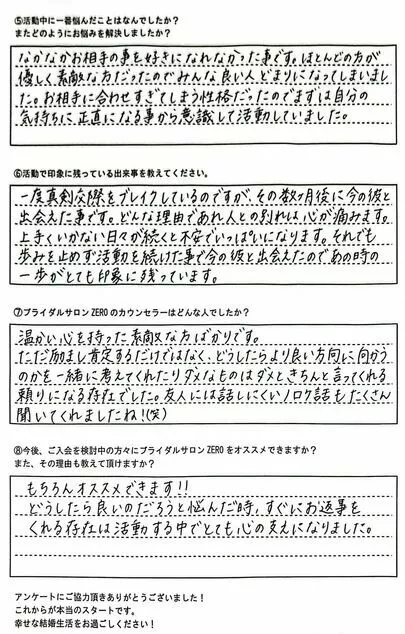 ⑤活動中に一番悩んだことはなんでしたか？
またどのようにお悩みを解決しましたか？
なかなかお相手の事を好きになれなかった事です。ほとんどの方が
優しく素敵な方だったのでみんな良い人どまりになってしまいまし
た。お相手に合わせすぎてしまう性格だったのでまずは自分の
気持ちに正直になる事から意識して活動していました。
⑥活動で印象に残っている出来事を教えてください。
一度真剣交際をブレイクしているのですが、その数ヶ月後に今の彼と
出会えた事です。どんな理由であれ人との別れは心が痛みます。
上手くいかない日々が続くと不安でいっぱいになります。それでも
歩みを止めず活動を続けた事で今の彼と出会えたのであの時の
一歩がとても印象に残っています。
⑦ブライダルサロンZEROのカウンセラーはどんな人でしたか？
温かい心を持った素敵な方ばかりです。
ただ励まし肯定するだけではなく、どうしたらより良い方向に向かう
のかを一緒に考えてくれたりダメなものはダメときちんと言ってくれる
頼りになる存在でした。友人には話しにくいノロケ話もたくさん
聞いてくれましたね！(笑)
⑧今後、ご入会を検討中の方々にブライダルサロンZEROをオススメできますか？
また、その理由も教えて頂けますか？
もちろんオススメできます！！
どうしたら良いのだろうと悩んだ時、すぐにお返事を
くれる存在は活動する中でとても心の支えになりました。
アンケートにご協力頂きありがとうございました！
これからが本当のスタートです。
幸せな結婚生活をお過ごしください！